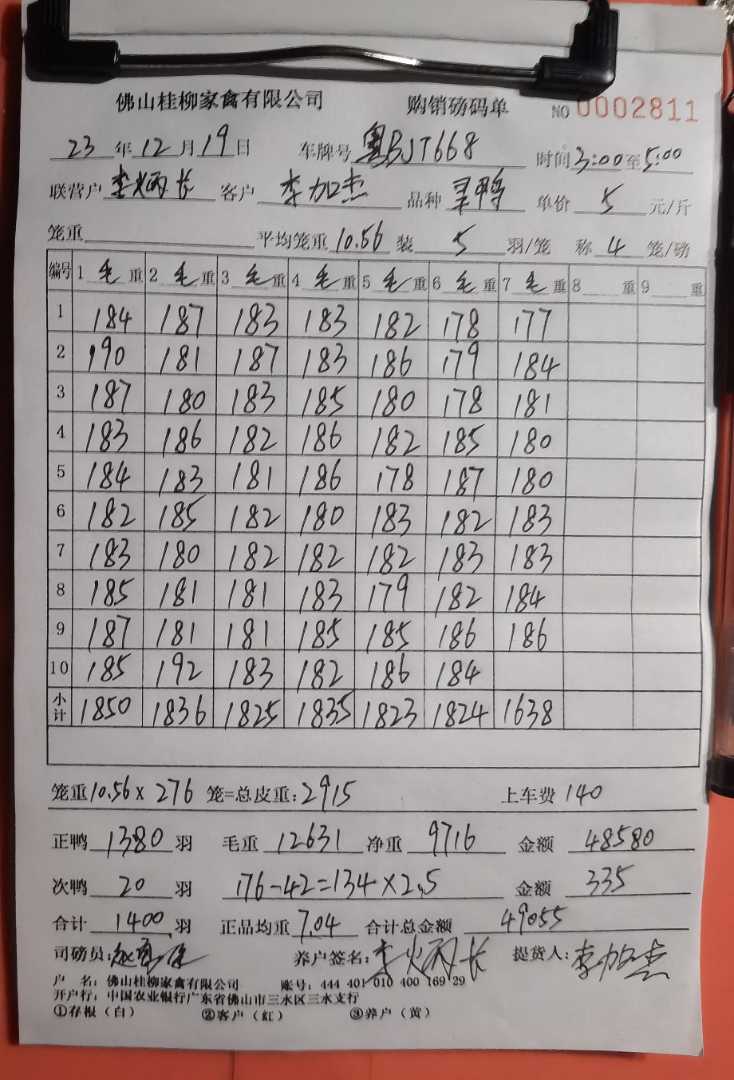 佛山桂柳家禽有限公司 购销磅码单 NO 0002811
23年12月19日 车牌号 粤BJT668 时间3:00至5:00
联营户 李炳长 客户 李加杰 品种 单价 5 元/斤
笼重 平均笼重10.56 装 5 羽/笼 称 4 笼/磅
编号 1 毛 重 2 毛 重 3 毛 重 4 毛 重 5 毛 重 6 毛 重 7 毛 重 8 重 9 重
1 184 187 183 183 182 178 177
2 190 181 187 183 186 179 184
3 187 180 183 185 180 178 181
4 183 186 182 186 182 185 180
5 184 183 181 186 178 187 180
6 182 185 182 180 183 182 183
7 183 180 182 182 182 183 183
8 185 181 181 183 179 182 184
9 187 181 181 185 185 186 186
10 185 192 183 182 186 184
小计 1850 1836 1825 1835 1823 1824 1638
笼重10.56×276 笼=总皮重:2915 上车费 140
正鸭 1380 羽 毛重 12631 净重 9716 金额 48580
次鸭 20 羽 176-42=134×2.5 金额 335
合计 1400 羽 正品均重 7.04 合计总金额 49055
司磅员: 养户签名: 李炳长 提货人: 李加杰
户 名: 佛山桂柳家禽有限公司 账号: 444 401 010 400 169 29
开户行: 中国农业银行广东省佛山市三水区三水支行
①存根（白） ②客户（红） ③养户（黄）